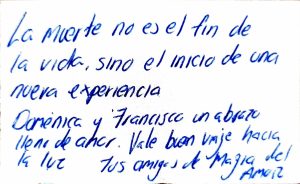 La muerte no es el fin de
la vida, sino el inicio de una
nueva experiencia
Doménica y Francisco un abrazo
lleno de amor. Vale buen viaje hacia
la luz Tus amigos de Magia del
Amor